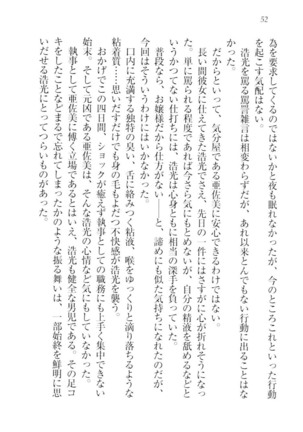 52
為を要求してくるのではないかと夜も眠れなかったが、今のところこれといった行動
を起こす気配はない。
浩光を罵る罵詈雑言は相変わらずだが、あれ以来とんでもない行動に出ることはな
かった。
だからといって、気分屋である亜佐美に安心できるわけではない。
長い間彼女に仕えてきた浩光でさえ、先日の一件にはさすがに心が折れそうになっ
た。単に罵られるだけであれば今さら気にもとめないが、自分の精液を舐めるなどと
いう屈辱的
普段なら、お嬢様だから仕方がない――と、諦めにも似た気持ちになれたのだが、
今回はそういうわけにはいかなかった。
口内に充満する独特の臭い、舌に絡みつく粘液、喉をゆっくりと滴り落ちるような
粘着質……思いだすだけでも身の毛もよだつ不快感が浩光を襲う。
おかげでこの四日間、ショックが癒えず執事としての職務にも上手く集中できない
始末。そして元凶である亜佐美は、そんな浩光の心情など気にもしていなかった。
執事として亜佐美に傅く立場であるとはいえ、浩光も健全な男児である。その足コ
キをしたことなどまるで忘れてしまったかのような振る舞いは、一部始終を鮮明に思
いだせる浩光にとってつらいものがあった。